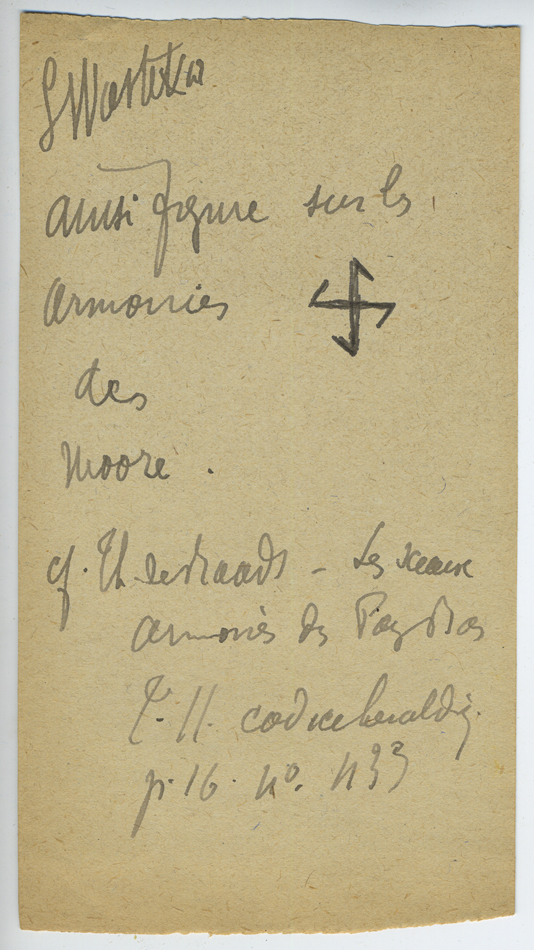 Swastika
ainsi figure sur les
Armoiries
des
Moore.
cf. Th de Raadt - Les sceaux
armoriés des Pays Bas
T. II.
p. 16. no.